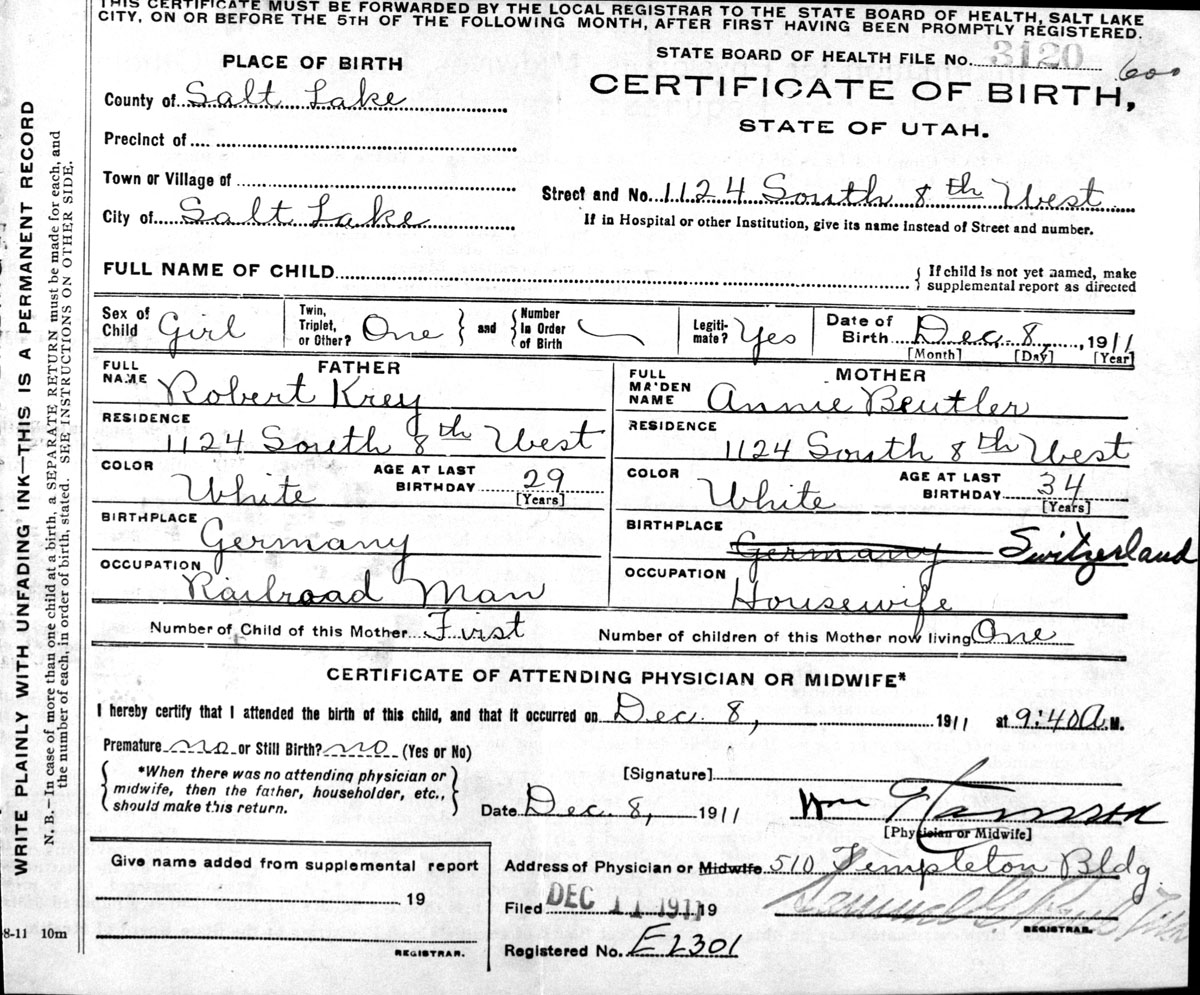 THIS CERTIFICATE MUST BE FORWARDED BY THE LOCAL REGISTRAR TO THE STATE BOARD OF HEALTH, SALT LAKE
CITY, ON OR BEFORE THE 5TH OF THE FOLLOWING MONTH, AFTER FIRST HAVING BEEN PROMPTLY REGISTERED.
WRITE PLAINLY WITH UNFADING INK—THIS IS A PERMANENT RECORD
N. B.—In case of more than one child at a birth, a SEPARATE RETURN must be made for each, and
the number of each, in order of birth, stated. SEE INSTRUCTIONS ON OTHER SIDE.
STATE BOARD OF HEALTH FILE No. 3120 600
PLACE OF BIRTH
CERTIFICATE OF BIRTH,
STATE OF UTAH.
County of Salt Lake
Precinct of
Town or Village of
Street and No. 1124 South 8th West
City of Salt Lake
If in Hospital or other Institution, give its name Instead of Street and number.
FULL NAME OF CHILD
If child is not yet named, make
supplemental report as directed
Sex of Child Girl
Twin, Triplet, or Other? One
and
Number In Order of Birth
Legiti-mate? Yes
Date of Birth Dec. 8, 1911
[Month] [Day] [Year]
FATHER
FULL NAME Robert Krey
RESIDENCE
1124 South 8th West
COLOR White
AGE AT LAST BIRTHDAY 29
[Years]
BIRTHPLACE
Germany
OCCUPATION
Railroad Man
MOTHER
FULL MAIDEN NAME Annie Beutler
RESIDENCE
1124 South 8th West
COLOR White
AGE AT LAST BIRTHDAY 34
[Years]
BIRTHPLACE
Germany Switzerland
OCCUPATION
Housewife
Number of Child of this Mother First
Number of children of this Mother now living One
CERTIFICATE OF ATTENDING PHYSICIAN OR MIDWIFE*
I hereby certify that I attended the birth of this child, and that it occurred on Dec. 8, 1911 at 9:40 A. M.
Premature no or Still Birth? no (Yes or No)
*When there was no attending physician or
midwife, then the father, householder, etc.,
should make this return.
[Signature]
Date Dec. 8, 1911
Wm
[Physician or Midwife]
Give name added from supplemental report
19
REGISTRAR.
8-11 10m
Address of Physician or Midwife 510 Templeton Bldg.
Filed DEC 11 1911 19
Samuel G.
REGISTRAR.
Registered No. E2301